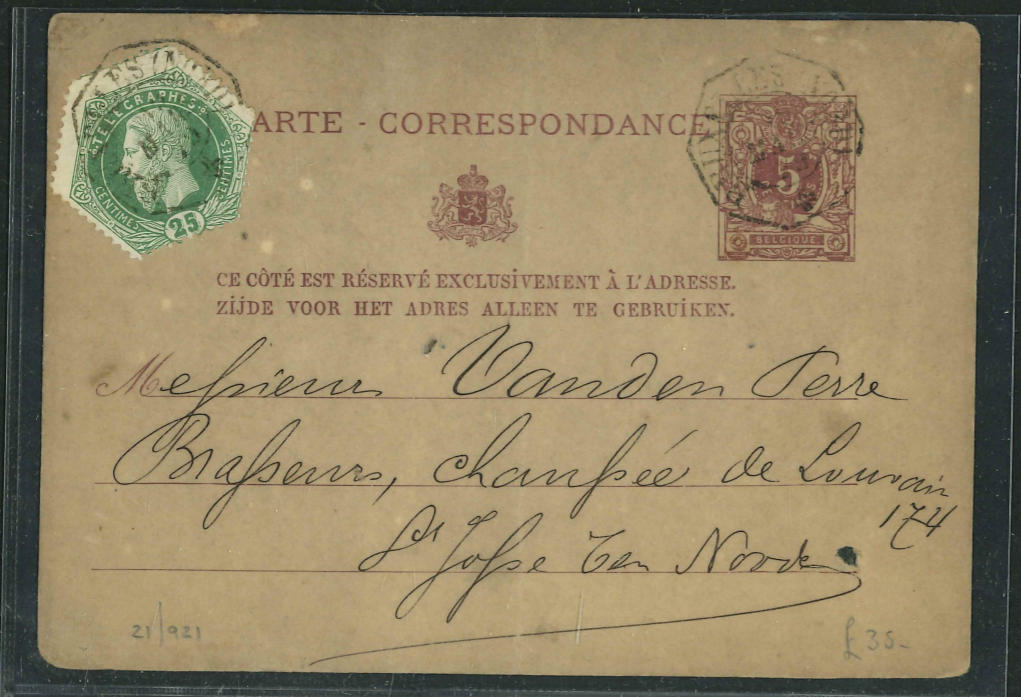 TÉLÉGRAPHES
CENTIMES 25 CENTIMES
ARTE - CORRESPONDANCE
5
BELGIQUE
CE CÔTÉ EST RÉSERVÉ EXCLUSIVEMENT À L'ADRESSE.
ZIJDE VOOR HET ADRES ALLEEN TE GEBRUIKEN.
Messieurs Vanden Perre
Brasseurs, chaussée de Louvain
174
St Josse ten Noode
21/921
£35-